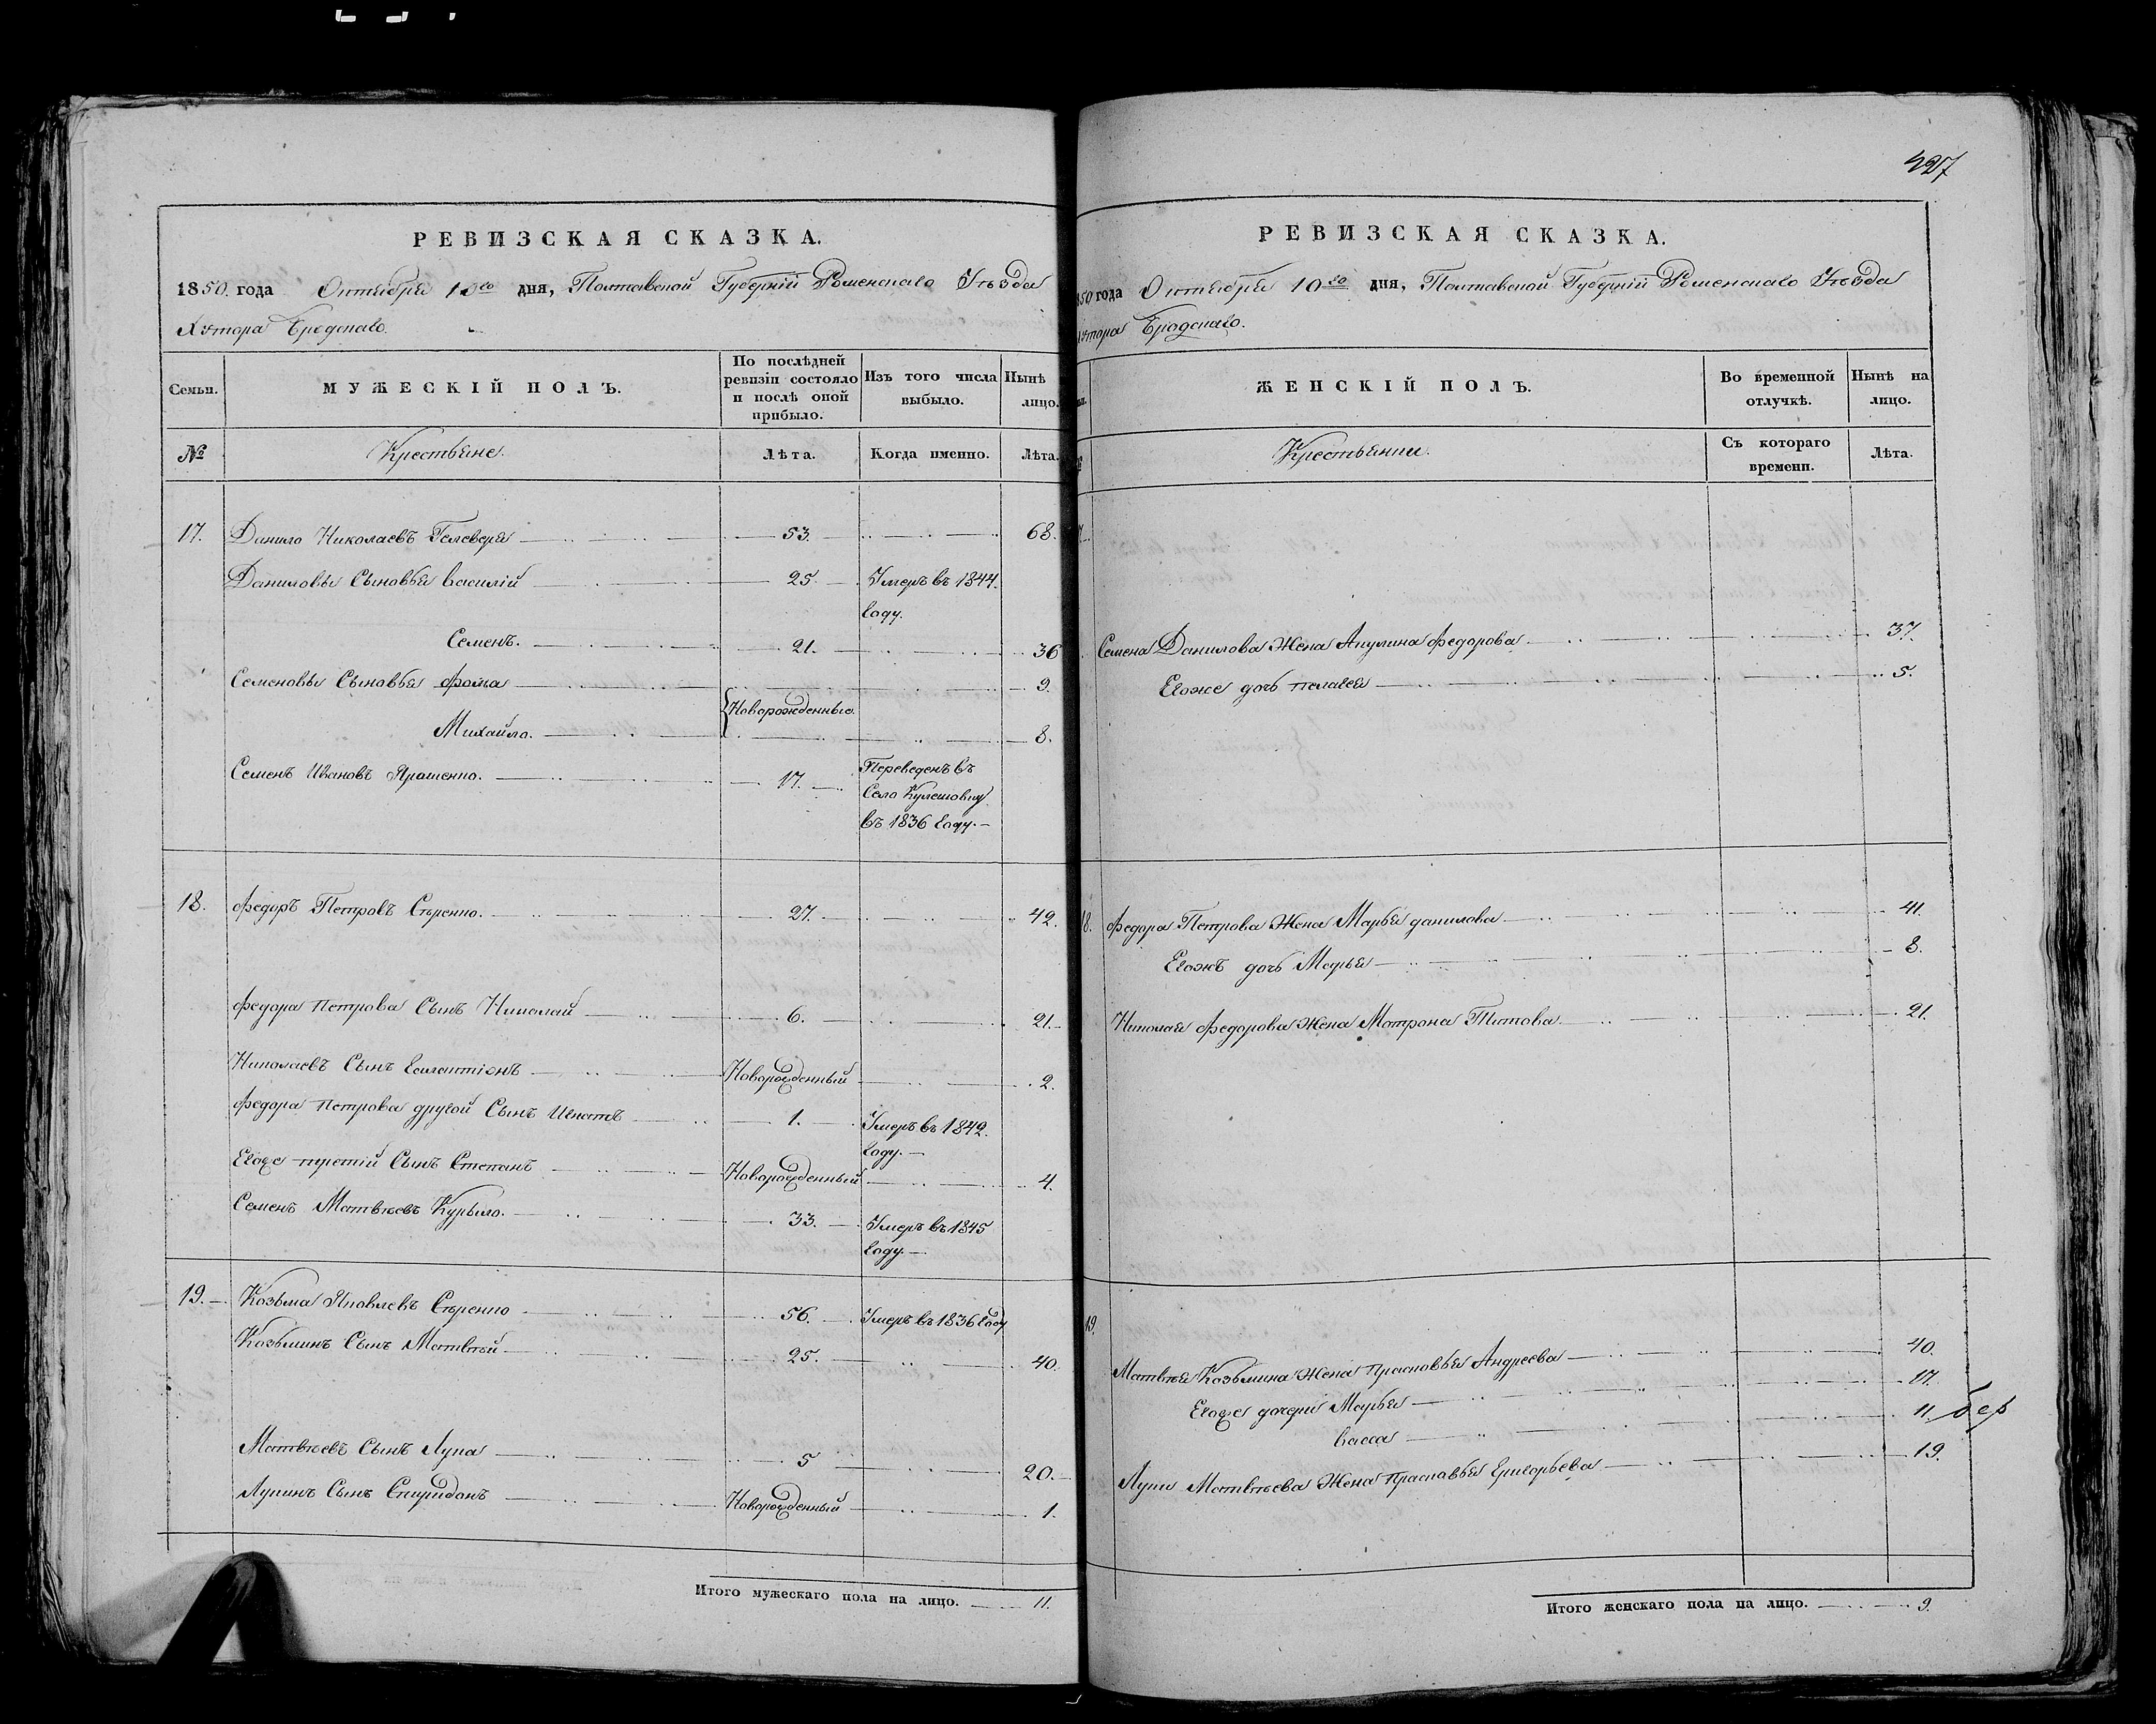 РЕВИЗСКАЯ СКАЗКА.
1850 года Октября 10го дня, Полтавской Губерній Роменскаго Уѣзда
Хутора Бродскаго.
Семьи. МУЖЕСКІЙ ПОЛЪ. По послѣдней ревизіи состояло и послѣ оной прибыло. Изъ того числа выбыло. Нынѣ лицо.
№ Крестьяне. Лѣта. Когда именно. Лѣта.
17. Данило Николаевъ Гелевера 53. 68.
Даниловы Сыновья Василій 25. Умеръ въ 1844.
году.
Семенъ. 21. 36
Семеновы Сыновья Фома 9.
Новорожденные.
Михайло. 8.
Семенъ Ивановъ Ярошенко. 17. Переведенъ въ
Село Кулешовку
въ 1836 году.
18. Федоръ Петровъ Сѣренко. 27. 42.
Федора Петрова Сынъ Николай 6. 21.
Николаевъ Сынъ Новорожденный 2.
Федора Петрова другой Сынъ Игнатъ 1. Умеръ въ 1842.
году.
Егоже третій Сынъ Степанъ Новорожденный 4.
Семенъ Матвѣевъ Курыло. 33. Умеръ въ 1845
году.
19. Козьма Яковлевъ Сѣренко 56. Умеръ въ 1836 году
Козьминъ Сынъ Матвѣй 25. 40.
Матвѣевъ Сынъ Лука 5 20.
Лукинъ Сынъ Спиридонъ Новорожденный 1.
Итого мужескаго пола на лицо. 11.
427
РЕВИЗСКАЯ СКАЗКА.
850 года Октября 10го дня, Полтавской Губерній Роменскаго Уѣзда
утора Бродскаго.
ЖЕНСКІЙ ПОЛЪ. Во временной отлучкѣ. Нынѣ на лицо.
Крестьянки. Съ котораго времени. Лѣта.
7.
Семена Данилова Жена Акулина Федорова 37.
Егоже дочь Пелагея 5.
18. Федора Петрова Жена Марья Данилова 41.
Егожъ дочь Марья 8.
Николая Федорова Жена Матрона Титова 21.
19.
Матвѣя Козьмина Жена Прасковья Андреева 40.
Егоже дочери Марья 17.
Васса 11.
Луки Матвѣева Жена Прасковья Григорьева 19.
Итого женскаго пола на лицо. 9.